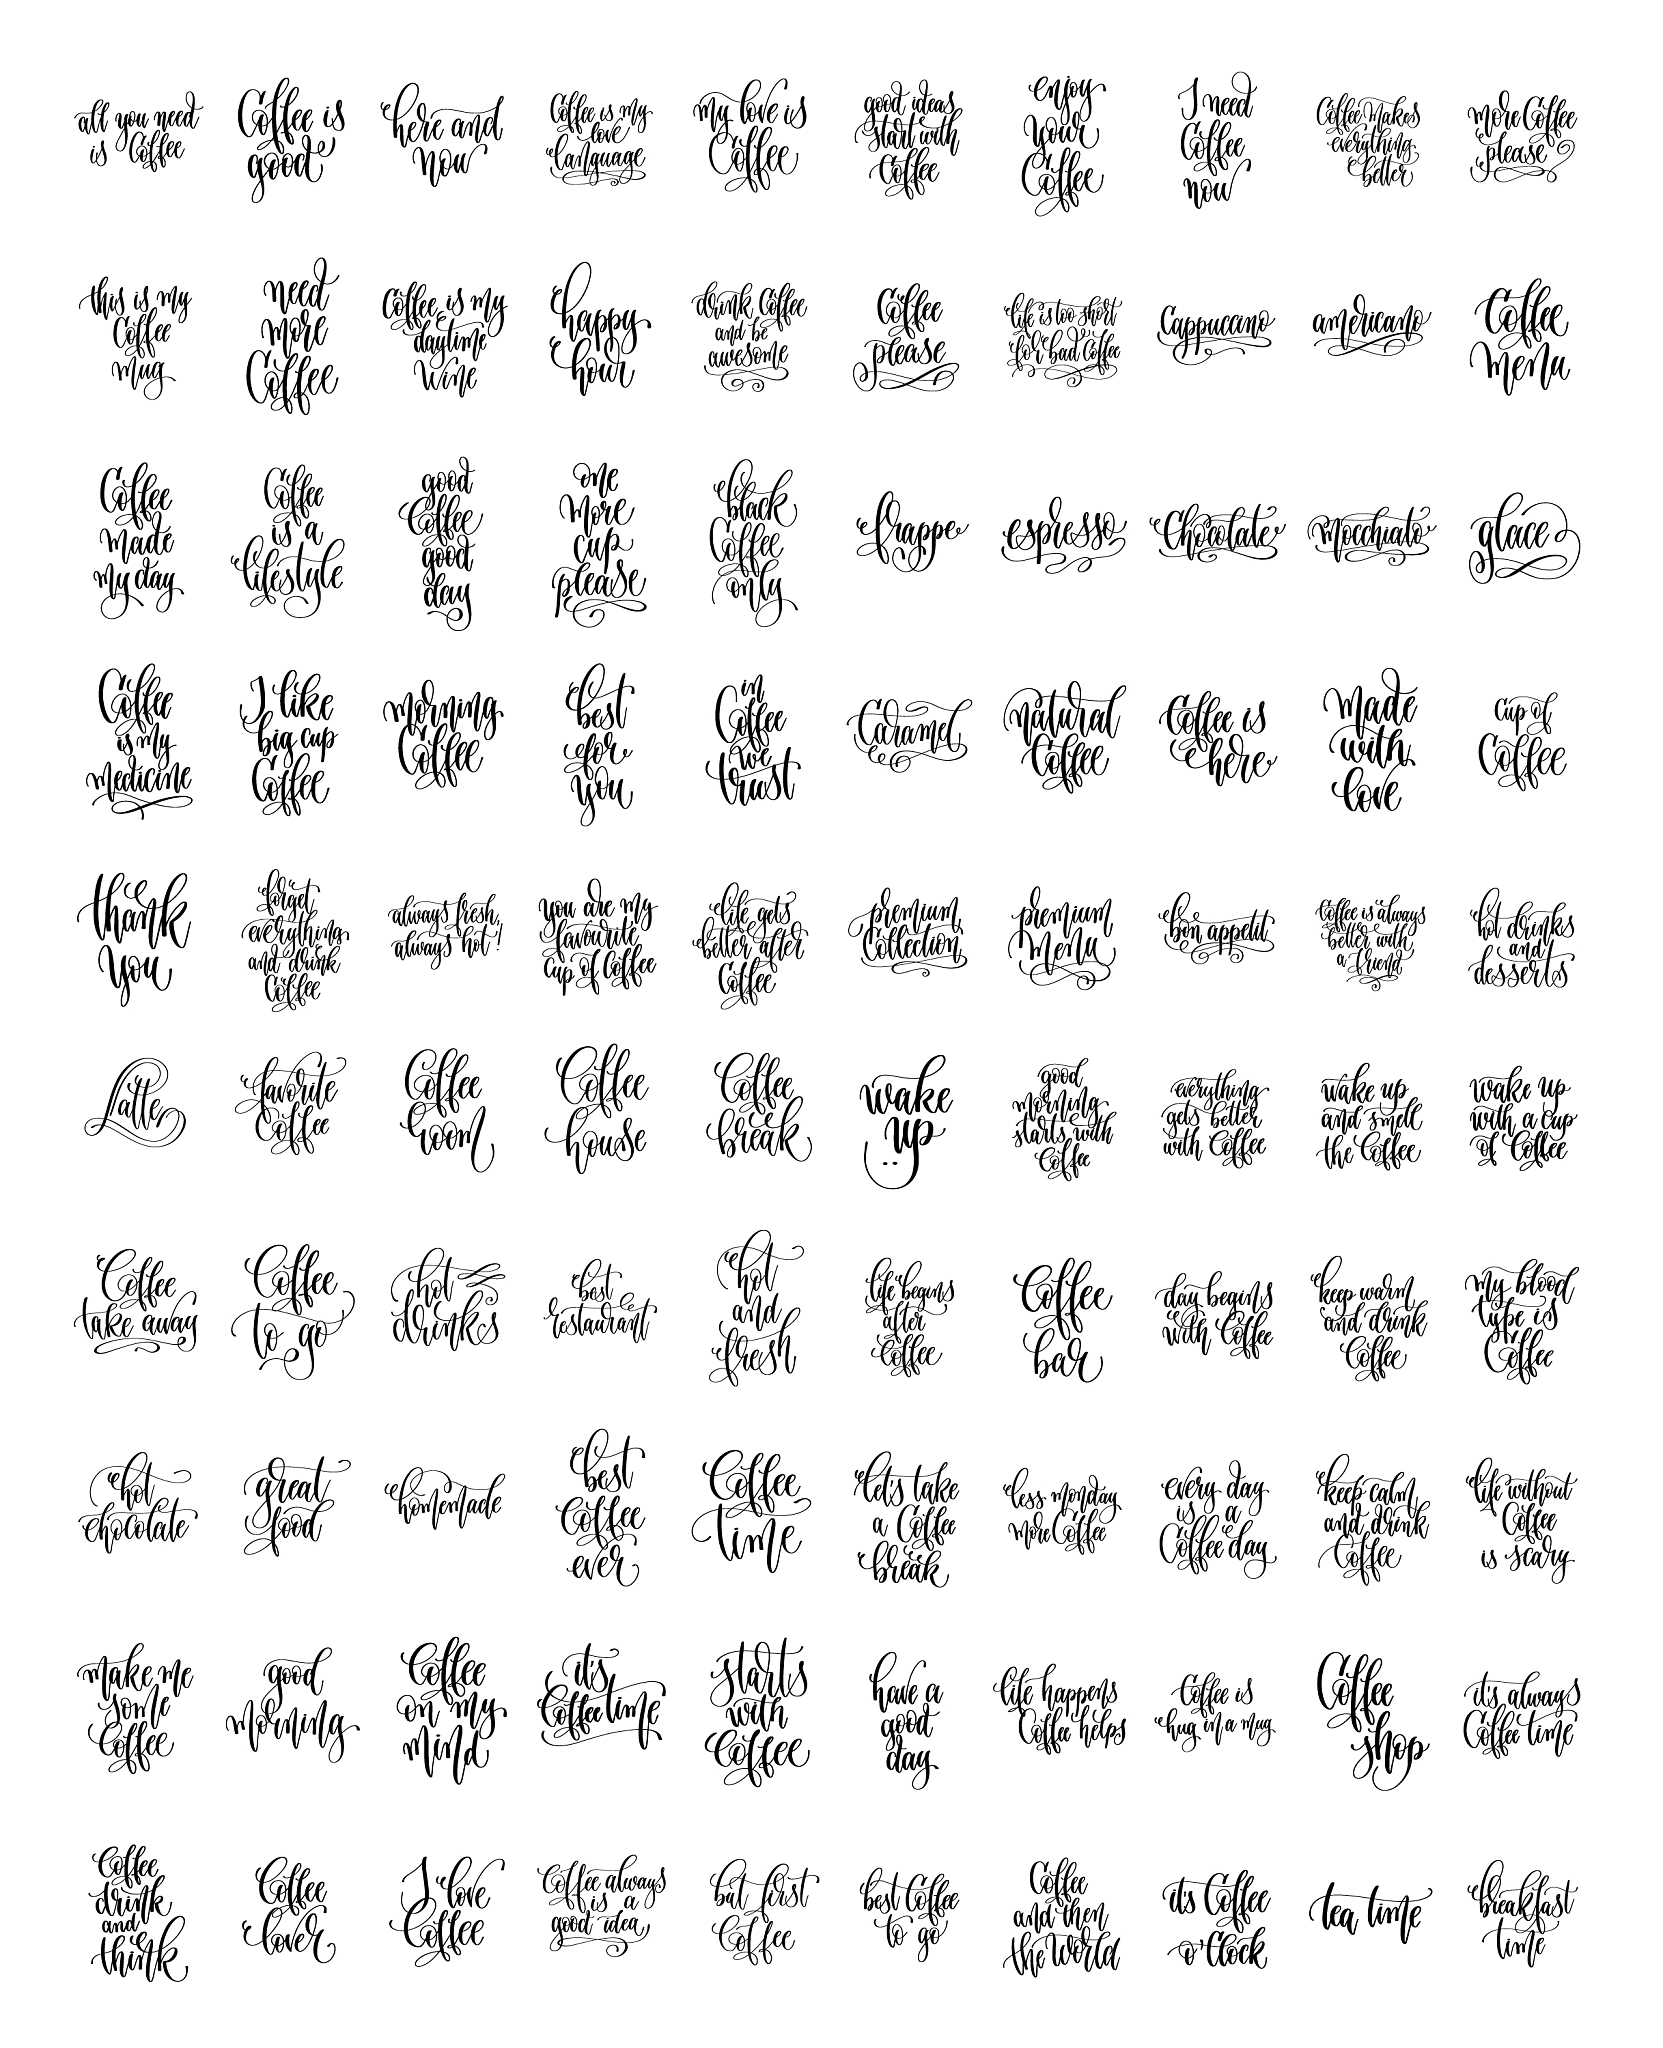 all you need
is Coffee
Coffee is
good
here and
now
Coffee is my
love
language
my love is
Coffee
good ideas
start with
Coffee
enjoy
your
Coffee
I need
Coffee
now
Coffee Makes
everything
better
more Coffee
please
this is my
Coffee
mug
need
more
Coffee
Coffee is my
daytime
wine
happy
hour
drink Coffee
and be
awesome
Coffee
please
life is too short
for bad Coffee
Cappuccino
americano
Coffee
menu
Coffee
made
my day
Coffee
is a
lifestyle
good
Coffee
good
day
one
more
cup
please
black
Coffee
only
frappe
espresso
Chocolate
mocchiato
glace
Coffee
is my
medicine
I like
big cup
Coffee
morning
Coffee
best
for
you
in
Coffee
we
trust
Caramel
natural
Coffee
Coffee is
here
made
with
love
Cup of
Coffee
thank
you
forget
everything
and drink
Coffee
always fresh,
always hot!
you are my
favourite
cup of Coffee
life gets
better after
Coffee
premium
Collection
premium
menu
bon appetit
Coffee is always
better with
a friend
hot drinks
and
desserts
Latte
favorite
Coffee
Coffee
room
Coffee
house
Coffee
break
wake
up
good
morning
starts with
Coffee
everything
gets better
with Coffee
wake up
and smell
the Coffee
wake up
with a cup
of Coffee
Coffee
take away
Coffee
to go
hot
drinks
best
restaurant
hot
and
fresh
life begins
after
Coffee
Coffee
bar
day begins
with Coffee
keep warm
and drink
Coffee
my blood
type is
Coffee
hot
chocolate
great
food
homemade
best
Coffee
ever
Coffee
time
let's take
a Coffee
break
less monday
more Coffee
every day
is a
Coffee day
keep calm
and drink
Coffee
life without
Coffee
is scary
make me
some
Coffee
good
morning
Coffee
on my
mind
it's
Coffee time
starts
with
Coffee
have a
good
day
life happens
Coffee helps
Coffee is
hug in a mug
Coffee
shop
it's always
Coffee time
Coffee
drink
and
think
Coffee
lover
I love
Coffee
Coffee always
is a
good idea
but first
Coffee
best Coffee
to go
Coffee
and then
the world
it's Coffee
o'Clock
tea time
breakfast
time